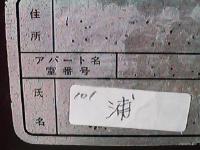 住所
アパート名
室番号
氏名
101
浦